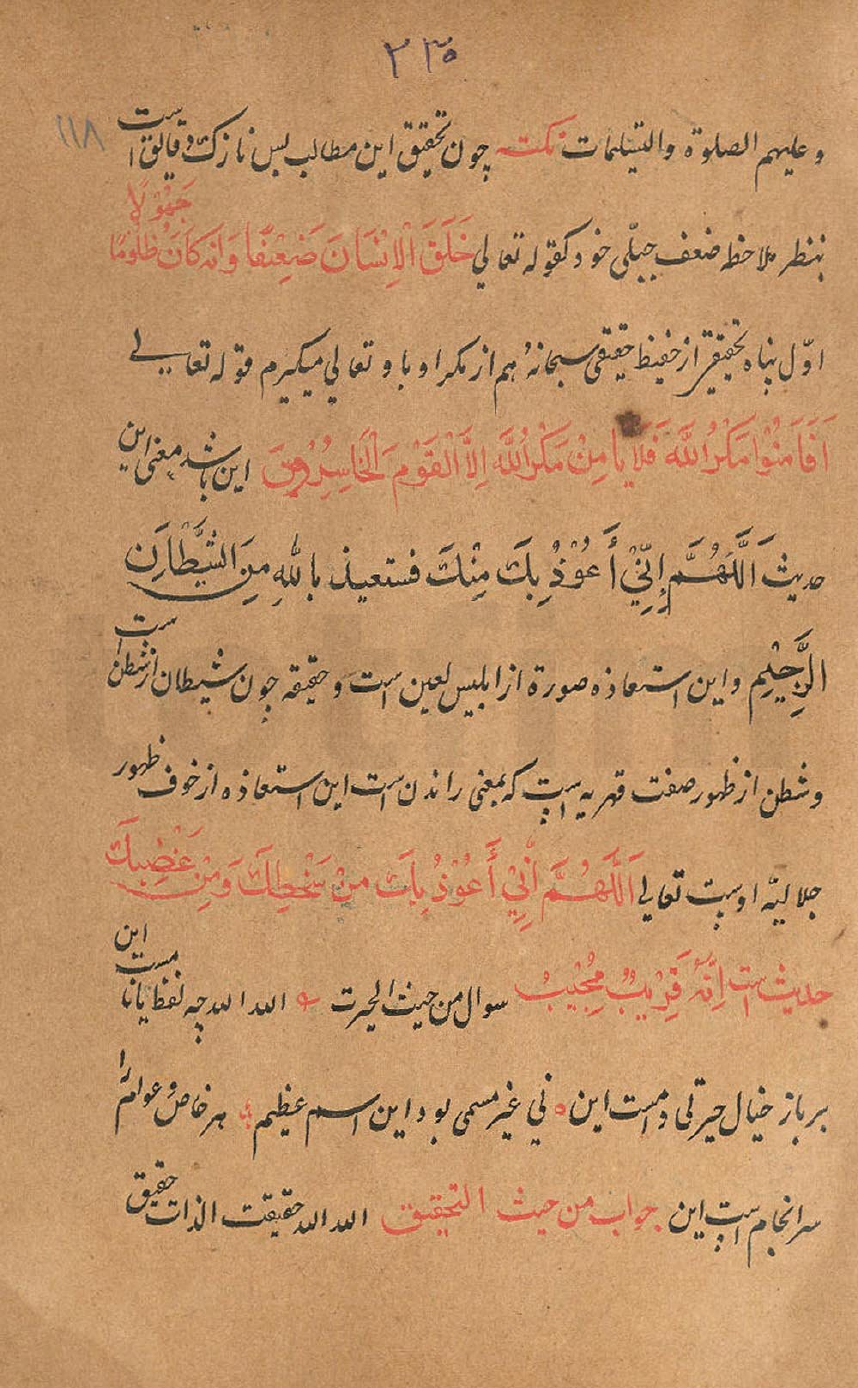 ۲۳۵
۱۱۸
و علیهم الصلوة والتسلیمات نکته چون تحقیق این مطالب بس نازک و قایق است
بنظر ملاحظه ضعف جبلّی خود کقوله تعالی خَلَقَ الْاِنْسَانَ ضَعِیْفًا وَانه کَانَ ظَلُوْمًا جَهُوْلًا
اوّل پناه تحقیق از حفیظ حقیقی سبحانهٗ هم از مکر او با و تعالی میگیرم قوله تعالے
اَفَاَمَنُوْا مَکْرُاللّٰه فَلَا یَا مِنْ مَکْرُاللّٰه اِلَّا الْقَوْم الْخَاسِرُوْنَ این باشد معنی این
حدیث اَللّٰهُمَّ اِنِّیْ اَعُوْذُ بِکَ مِنْکَ فستعیذ باللّٰهِ مِنَ الشَّیْطَانِ
الرَّجِیْمِ و این استعاذه صورة از ابلیس لعین است و حقیقه چون شیطان از شطن است
و شطن از ظهور صفت قهریه است که بمعنی راندن است این استعاذه از خوف ظهور
جلالیّه اوست تعالی اَللّٰهُمَّ اَنِّیْ اَعُوْذُ بِکَ مِنْ سَخَطِکَ وَمِنْ غَضَبِکَ
حدیث است اِنَّهٗ قَرِیْبٌ مُجِیْبٌ سوال من حیث الحیرت الله الله چه لفظ یا نامست این
بر باز خیال حیرتی دامست این نی غیر مسمی بود این اسم عظیم هر خاص و عوام را
سرانجام است این جواب من حیث التحقیق الله الله حقیقت الذات حقیق